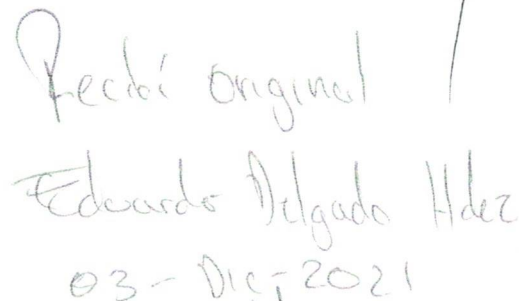 Recibí original
Eduardo Delgado Hdez
03-Dic-2021